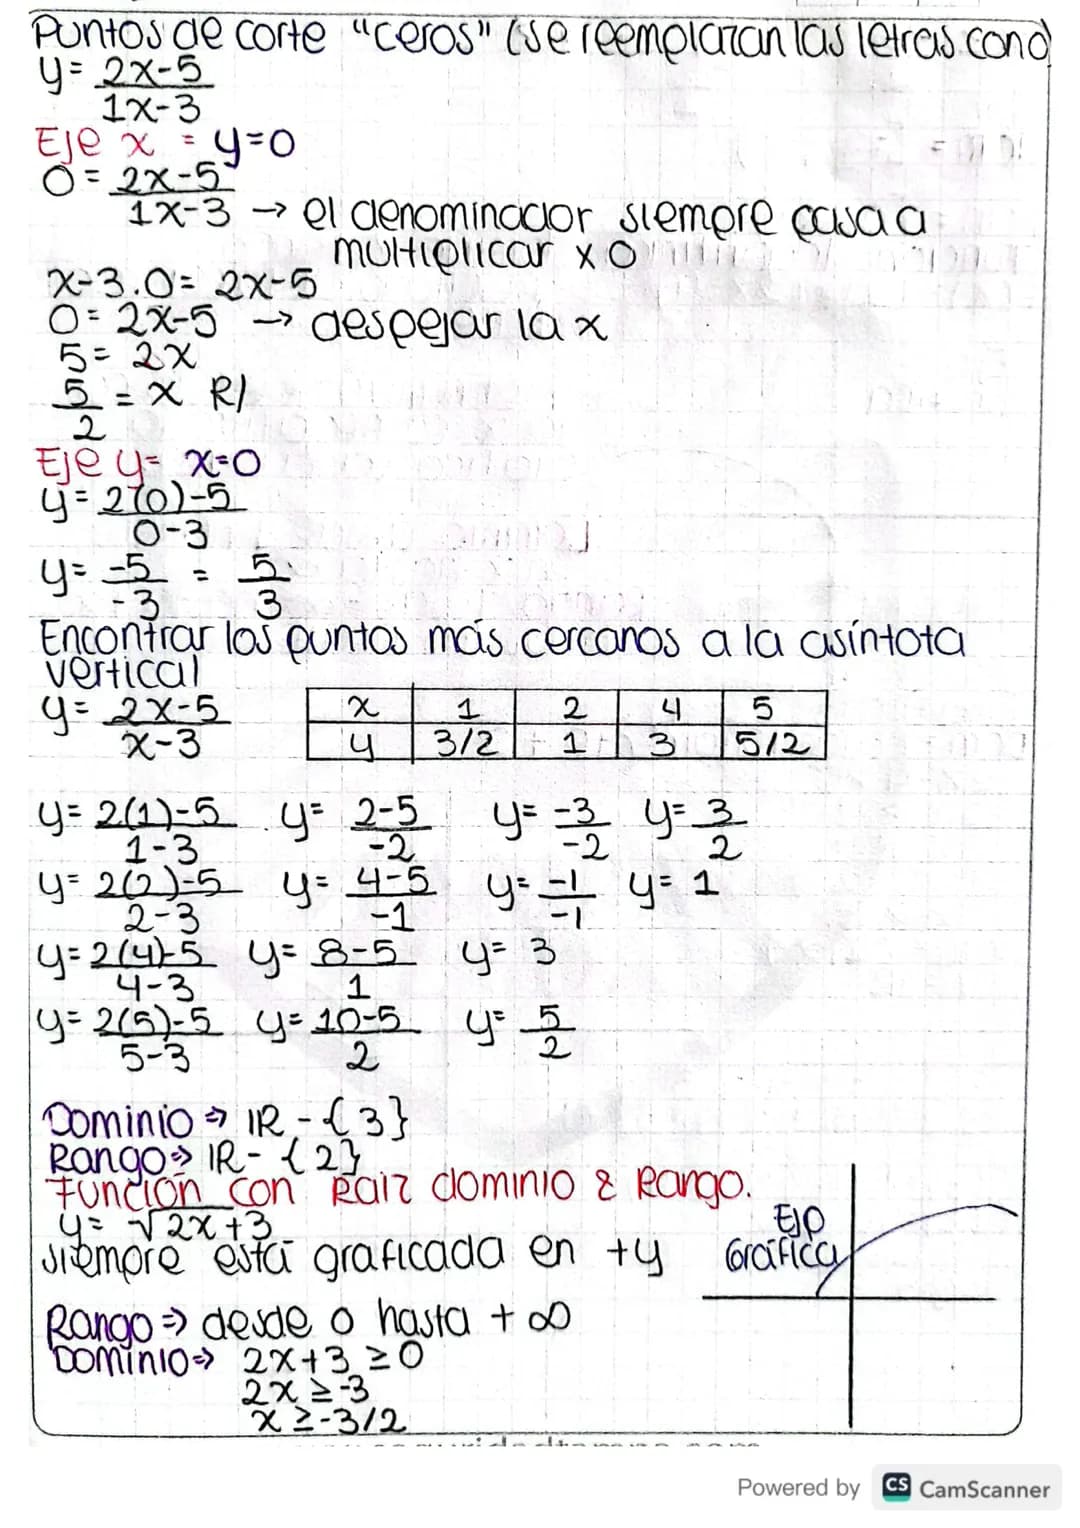 Puntos de corte "ceros" (se reemplazan las letras con 0)
y = 2x-5 / 1x-3
Eje x = y=0
0 = 2x-5 / 1x-3 → el denominador siempre pasa a multiplicar x 0
x-3.0 = 2x-5
0 = 2x-5 → despejar la x
5 = 2x
5/2 = x R/
Eje y = x=0
y = 2(0)-5 / 0-3
y = -5/-3 = 5/3
Encontrar los puntos más cercanos a la asíntota vertical
y = 2x-5 / x-3
x 1 2 4 5
y 3/2 1 3 5/2
y = 2(1)-5 / 1-3 y = 2-5 / -2 y = -3/-2 y = 3/2
y = 2(2)-5 / 2-3 y = 4-5 / -1 y = -1/-1 y = 1
y = 2(4)-5 / 4-3 y = 8-5 / 1 y = 3
y = 2(5)-5 / 5-3 y = 10-5 / 2 y = 5/2
Dominio ⇒ IR - {3}
Rango ⇒ IR - {2}
Función con Raiz dominio & Rango.
y = √2x+3
siempre está graficada en +y
Ejp
Gráfica
Rango ⇒ desde 0 hasta + ∞
Dominio ⇒ 2x+3 ≥ 0
2x ≥ -3
x ≥ -3/2
Powered by CS CamScanner